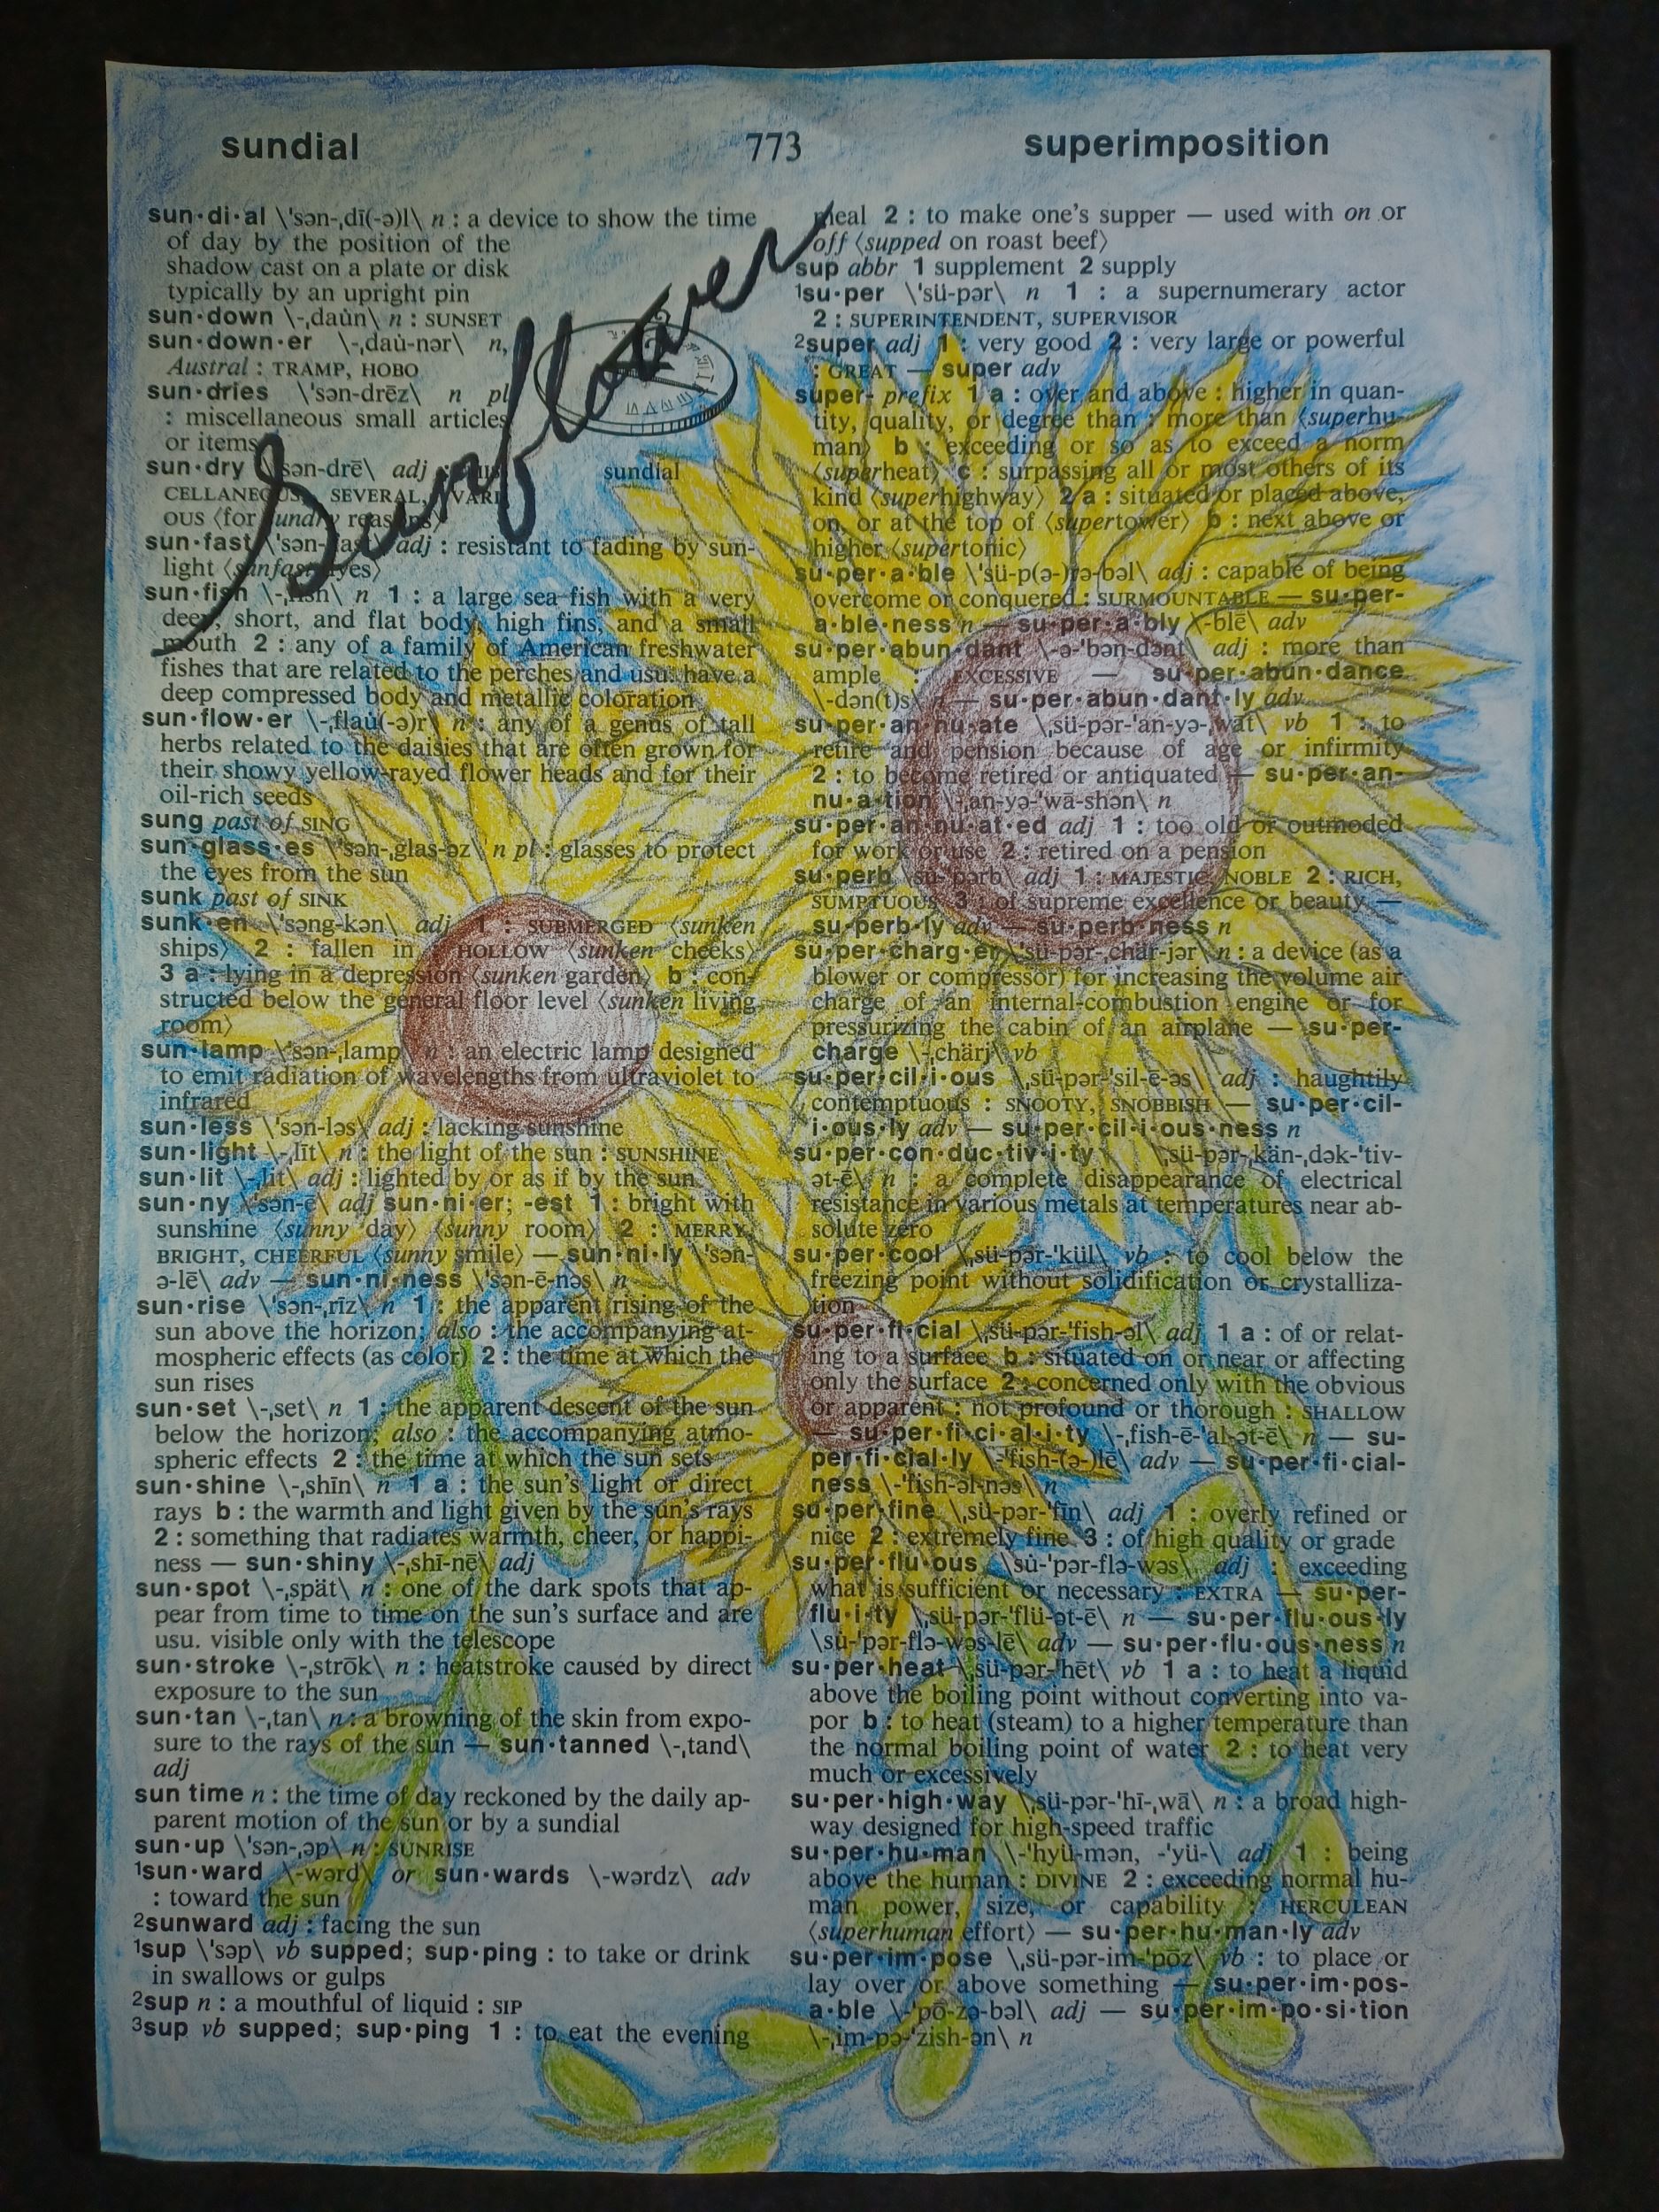 sundial 773 superimposition
Sunflower
sun·di·al \ˈsən-ˌdī(-ə)l\ n : a device to show the time
of day by the position of the
shadow cast on a plate or disk
typically by an upright pin
sun·down \-ˌdau̇n\ n : SUNSET
sun·down·er \-ˌdau̇-nər\ n,
Austral : TRAMP, HOBO
sun·dries \ˈsən-drēz\ n pl
: miscellaneous small articles
or items
sun·dry \ˈsən-drē\ adj :
CELLANEOUS, SEVERAL, VARI-
OUS ⟨for sundry reasons⟩
sundial
sun·fast \ˈsən-ˌfast\ adj : resistant to fading by sun-
light ⟨sunfast dyes⟩
sun·fish \-ˌfish\ n 1 : a large sea fish with a very
deep, short, and flat body, high fins, and a small
mouth 2 : any of a family of American freshwater
fishes that are related to the perches and usu. have a
deep compressed body and metallic coloration
sun·flow·er \-ˌflau̇(-ə)r\ n : any of a genus of tall
herbs related to the daisies that are often grown for
their showy yellow-rayed flower heads and for their
oil-rich seeds
sung past of SING
sun·glass·es \ˈsən-ˌglas-əz\ n pl : glasses to protect
the eyes from the sun
sunk past of SINK
sunk·en \ˈsəng-kən\ adj 1 : SUBMERGED ⟨sunken
ships⟩ 2 : fallen in : HOLLOW ⟨sunken cheeks⟩
3 a : lying in a depression ⟨sunken garden⟩ b : con-
structed below the general floor level ⟨sunken living
room⟩
sun·lamp \ˈsən-ˌlamp\ n : an electric lamp designed
to emit radiation of wavelengths from ultraviolet to
infrared
sun·less \ˈsən-ləs\ adj : lacking sunshine
sun·light \-ˌlīt\ n : the light of the sun : SUNSHINE
sun·lit \-ˌlit\ adj : lighted by or as if by the sun
sun·ny \ˈsən-ē\ adj sun·ni·er; -est 1 : bright with
sunshine ⟨sunny day⟩ ⟨sunny room⟩ 2 : MERRY,
BRIGHT, CHEERFUL ⟨sunny smile⟩ — sun·ni·ly \ˈsən-
ə-lē\ adv — sun·ni·ness \ˈsən-ē-nəs\ n
sun·rise \ˈsən-ˌrīz\ n 1 : the apparent rising of the
sun above the horizon; also : the accompanying at-
mospheric effects (as color) 2 : the time at which the
sun rises
sun·set \-ˌset\ n 1 : the apparent descent of the sun
below the horizon; also : the accompanying atmo-
spheric effects 2 : the time at which the sun sets
sun·shine \-ˌshīn\ n 1 a : the sun's light or direct
rays b : the warmth and light given by the sun's rays
2 : something that radiates warmth, cheer, or happi-
ness — sun·shiny \-ˌshī-nē\ adj
sun·spot \-ˌspät\ n : one of the dark spots that ap-
pear from time to time on the sun's surface and are
usu. visible only with the telescope
sun·stroke \-ˌstrōk\ n : heatstroke caused by direct
exposure to the sun
sun·tan \-ˌtan\ n : a browning of the skin from expo-
sure to the rays of the sun — sun·tanned \-ˌtand\
adj
sun time n : the time of day reckoned by the daily ap-
parent motion of the sun or by a sundial
sun·up \ˈsən-ˌəp\ n : SUNRISE
¹sun·ward \-wərd\ or sun·wards \-wərdz\ adv
: toward the sun
²sunward adj : facing the sun
¹sup \ˈsəp\ vb supped; sup·ping : to take or drink
in swallows or gulps
²sup n : a mouthful of liquid : SIP
³sup vb supped; sup·ping 1 : to eat the evening
meal 2 : to make one's supper — used with on or
off ⟨supped on roast beef⟩
sup abbr 1 supplement 2 supply
¹su·per \ˈsü-pər\ n 1 : a supernumerary actor
2 : SUPERINTENDENT, SUPERVISOR
²super adj 1 : very good 2 : very large or powerful
: GREAT — super adv
super- prefix 1 a : over and above : higher in quan-
tity, quality, or degree than : more than ⟨superhu-
man⟩ b : exceeding or so as to exceed a norm
⟨superheat⟩ c : surpassing all or most others of its
kind ⟨superhighway⟩ 2 a : situated or placed above,
on, or at the top of ⟨supertower⟩ b : next above or
higher ⟨supertonic⟩
su·per·a·ble \ˈsü-p(ə-)rə-bəl\ adj : capable of being
overcome or conquered : SURMOUNTABLE — su·per-
a·ble·ness n — su·per·a·bly \-blē\ adv
su·per·abun·dant \-ə-ˈbən-dənt\ adj : more than
ample : EXCESSIVE — su·per·abun·dance
\-dən(t)s\ n — su·per·abun·dant·ly adv
su·per·an·nu·ate \ˌsü-pər-ˈan-yə-ˌwāt\ vb 1 : to
retire and pension because of age or infirmity
2 : to become retired or antiquated — su·per·an-
nu·a·tion \-ˌan-yə-ˈwā-shən\ n
su·per·an·nu·at·ed adj 1 : too old or outmoded
for work or use 2 : retired on a pension
su·perb \su̇-ˈpərb\ adj 1 : MAJESTIC, NOBLE 2 : RICH,
SUMPTUOUS 3 : of supreme excellence or beauty —
su·perb·ly adv — su·perb·ness n
su·per·charg·er \ˈsü-pər-ˌchär-jər\ n : a device (as a
blower or compressor) for increasing the volume air
charge of an internal-combustion engine or for
pressurizing the cabin of an airplane — su·per-
charge \-ˌchärj\ vb
su·per·cil·i·ous \ˌsü-pər-ˈsil-ē-əs\ adj : haughtily
contemptuous : SNOOTY, SNOBBISH — su·per·cil-
i·ous·ly adv — su·per·cil·i·ous·ness n
su·per·con·duc·tiv·i·ty \ˌsü-pər-ˌkän-ˌdək-ˈtiv-
ət-ē\ n : a complete disappearance of electrical
resistance in various metals at temperatures near ab-
solute zero
su·per·cool \ˌsü-pər-ˈkül\ vb : to cool below the
freezing point without solidification or crystalliza-
tion
su·per·fi·cial \ˌsü-pər-ˈfish-əl\ adj 1 a : of or relat-
ing to a surface b : situated on or near or affecting
only the surface 2 : concerned only with the obvious
or apparent : not profound or thorough : SHALLOW
— su·per·fi·ci·al·i·ty \-ˌfish-ē-ˈal-ət-ē\ n — su-
per·fi·cial·ly \-ˈfish-(ə-)lē\ adv — su·per·fi·cial-
ness \-ˈfish-əl-nəs\ n
su·per·fine \ˌsü-pər-ˈfīn\ adj 1 : overly refined or
nice 2 : extremely fine 3 : of high quality or grade
su·per·flu·ous \su̇-ˈpər-flə-wəs\ adj : exceeding
what is sufficient or necessary : EXTRA — su·per-
flu·i·ty \ˌsü-pər-ˈflü-ət-ē\ n — su·per·flu·ous·ly
\su̇-ˈpər-flə-wəs-lē\ adv — su·per·flu·ous·ness n
su·per·heat \ˌsü-pər-ˈhēt\ vb 1 a : to heat a liquid
above the boiling point without converting into va-
por b : to heat (steam) to a higher temperature than
the normal boiling point of water 2 : to heat very
much or excessively
su·per·high·way \ˌsü-pər-ˈhī-ˌwā\ n : a broad high-
way designed for high-speed traffic
su·per·hu·man \-ˈhyü-mən, -ˈyü-\ adj 1 : being
above the human : DIVINE 2 : exceeding normal hu-
man power, size, or capability : HERCULEAN
⟨superhuman effort⟩ — su·per·hu·man·ly adv
su·per·im·pose \ˌsü-pər-im-ˈpōz\ vb : to place or
lay over or above something — su·per·im·pos-
a·ble \-ˈpō-zə-bəl\ adj — su·per·im·po·si·tion
\-ˌim-pə-ˈzish-ən\ n